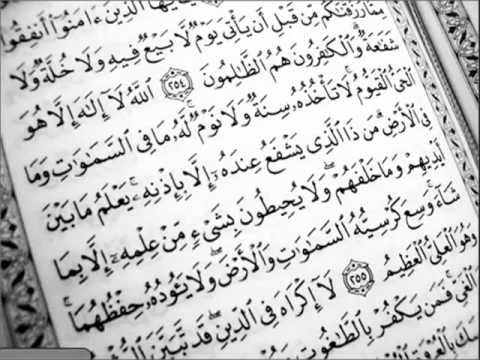 يَٰٓأَيُّهَا ٱلَّذِينَ ءَامَنُوٓا۟ أَنفِقُوا۟
مِمَّا رَزَقْنَٰكُم مِّن قَبْلِ أَن يَأْتِىَ يَوْمٌ لَّا بَيْعٌ فِيهِ وَلَا خُلَّةٌ وَلَا
شَفَٰعَةٌ وَٱلْكَٰفِرُونَ هُمُ ٱلظَّٰلِمُونَ ٢٥٤ ٱللَّهُ لَآ إِلَٰهَ إِلَّا هُوَ
ٱلْحَىُّ ٱلْقَيُّومُ لَا تَأْخُذُهُۥ سِنَةٌ وَلَا نَوْمٌ لَّهُۥ مَا فِى ٱلسَّمَٰوَٰتِ وَمَا
فِى ٱلْأَرْضِ مَن ذَا ٱلَّذِى يَشْفَعُ عِندَهُۥٓ إِلَّا بِإِذْنِهِۦ يَعْلَمُ مَا بَيْنَ
أَيْدِيهِمْ وَمَا خَلْفَهُمْ وَلَا يُحِيطُونَ بِشَىْءٍ مِّنْ عِلْمِهِۦٓ إِلَّا بِمَا
شَآءَ وَسِعَ كُرْسِيُّهُ ٱلسَّمَٰوَٰتِ وَٱلْأَرْضَ وَلَا يَـُٔودُهُۥ حِفْظُهُمَا
وَهُوَ ٱلْعَلِىُّ ٱلْعَظِيمُ ٢٥٥ لَآ إِكْرَاهَ فِى ٱلدِّينِ قَد تَّبَيَّنَ
ٱلْغَىِّ فَمَن يَكْفُرْ بِٱلطَّٰغُوتِ